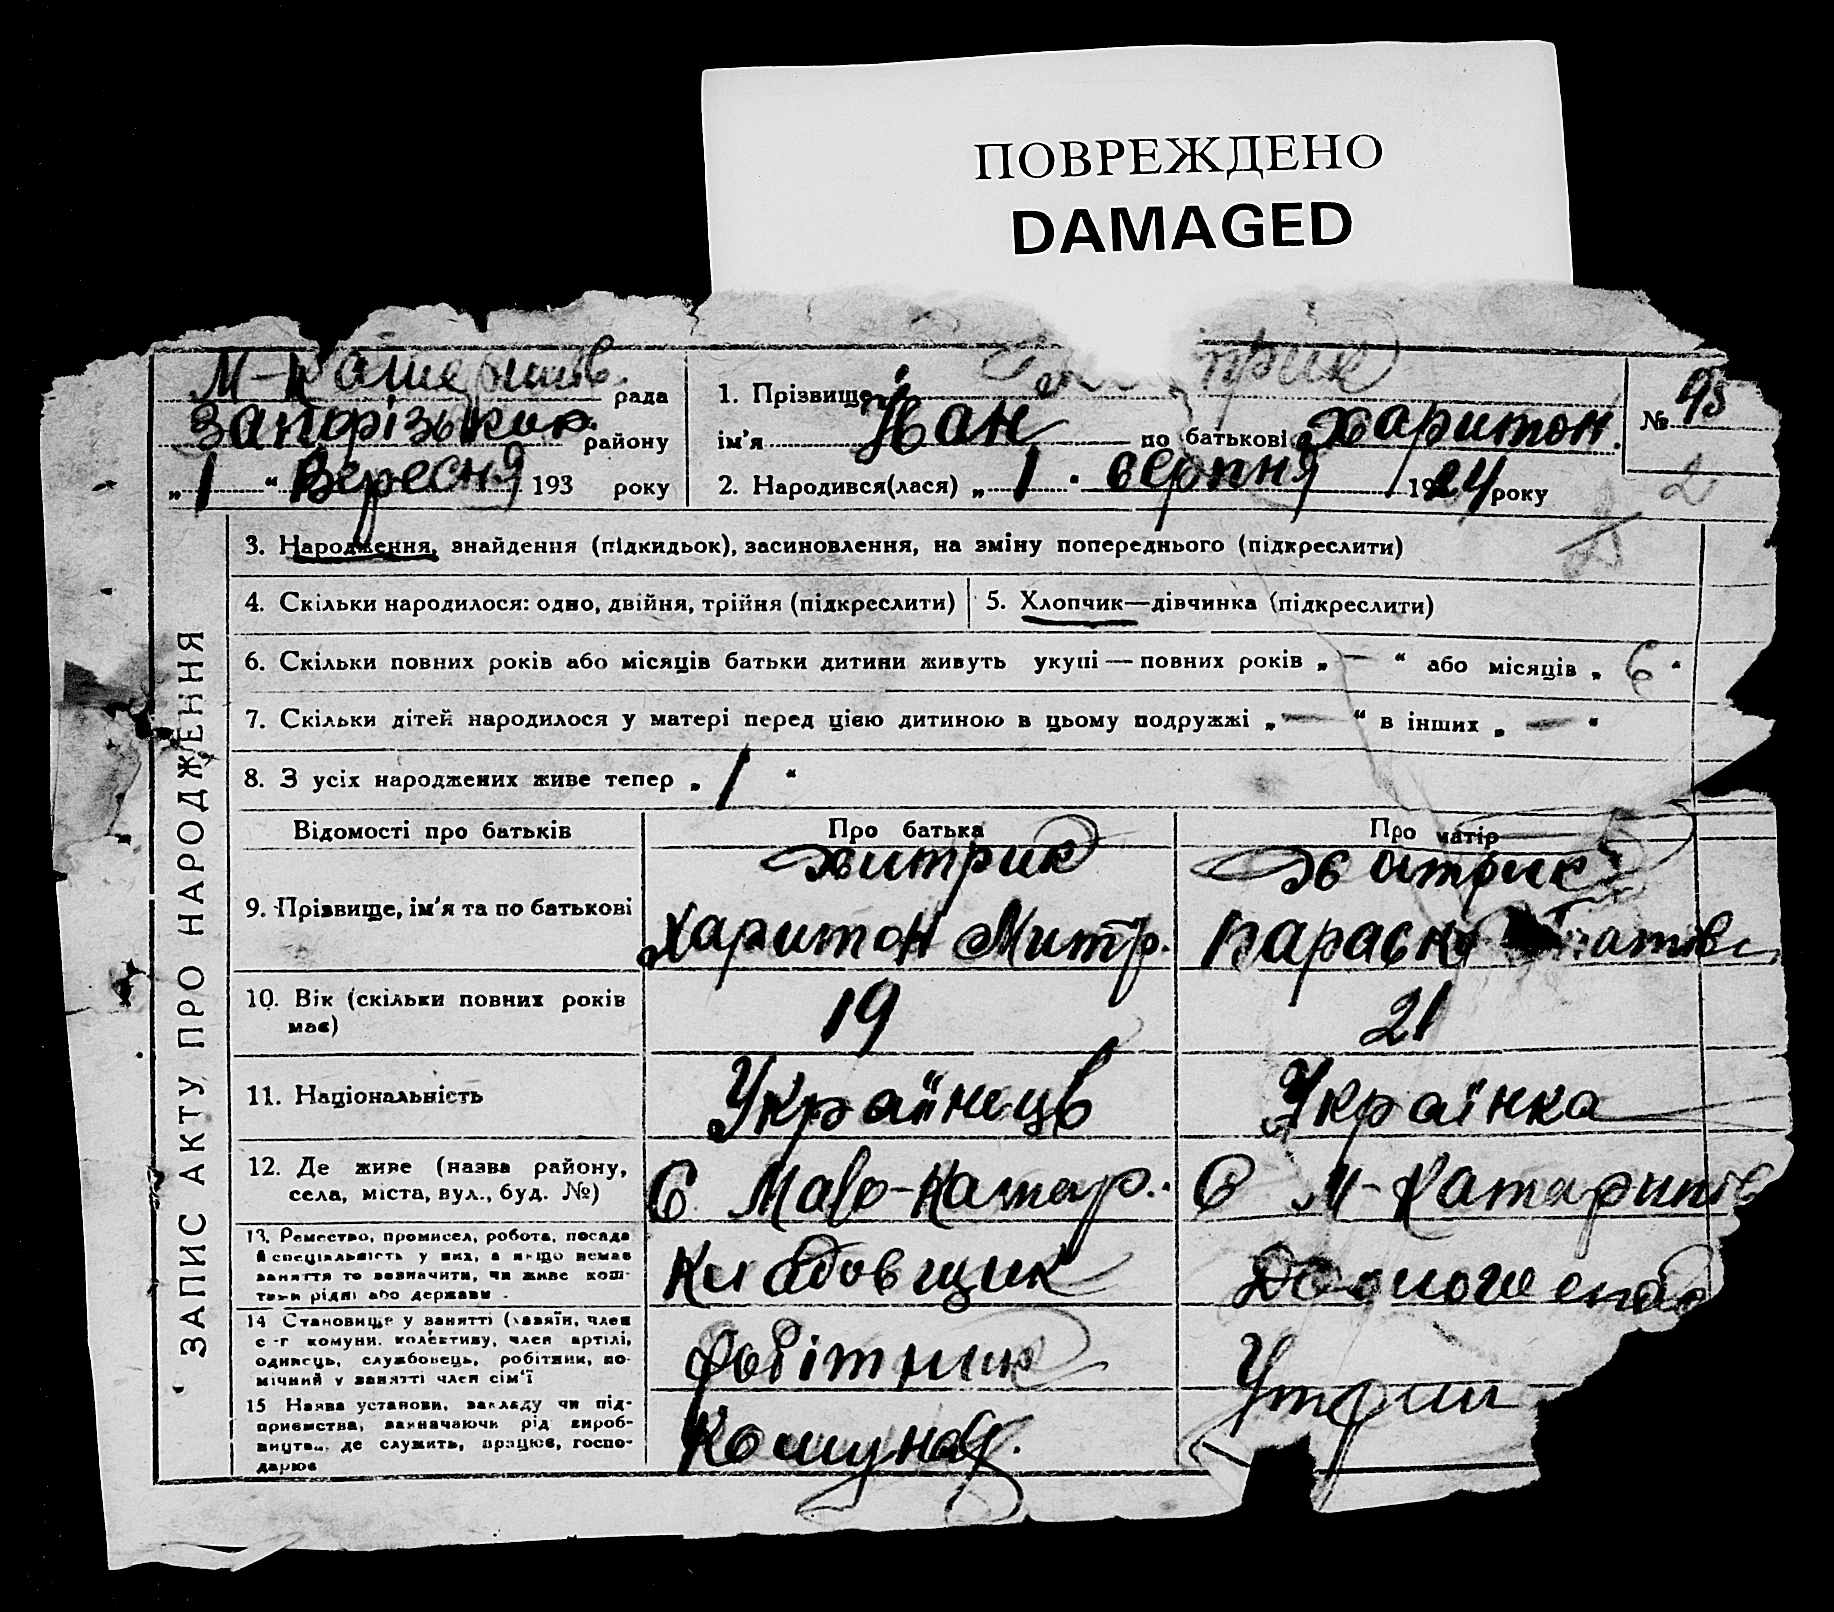 ПОВРЕЖДЕНО
DAMAGED
рада
Запорізьког району
„1“ Вересня 193 року
1. Прізвище
ім'я Іван по батькові Харитон.
2. Народився(лася) „1“ серпня 1924 року
№ 98
2
3. Народження, знайдення (підкидьок), засиновлення, на зміну попереднього (підкреслити)
4. Скільки народилося: одно, двійня, трійня (підкреслити)
5. Хлопчик—дівчинка (підкреслити)
6. Скільки повних років або місяців батьки дитини живуть укупі — повних років „—“ або місяців „6“
7. Скільки дітей народилося у матері перед цією дитиною в цьому подружжі „—“ в інших „—“
8. З усіх народжених живе тепер „1“
ЗАПИС АКТУ ПРО НАРОДЖЕННЯ
Відомості про батьків
Про батька
Про матір
9. Прізвище, ім'я та по батькові
Хитрик
Харитон Митр.
Хитрик
Параска
10. Вік (скільки повних років
має)
19
21
11. Національність
Українець
Українка
12. Де живе (назва району,
села, міста, вул., буд. №)
С Мало-Катер.
С М-Катеринів
13. Ремество, промисел, робота, посада
й спеціальність у них, а якщо немає
заняття то зазначити, чи живе кош-
тами рідні або держави.
Кладовщик
14 Становище у занятті (хазяїн, член
с-г комуни, колективу, член артілі,
одинець, службовець, робітник, по-
мічний у занятті член сім'ї
Робітник
Утрим
15 Назва установи, закладу чи під-
приємства, зазначаючи рід вироб-
ництва, де служить, працює, госпо-
дарює
Комунар.